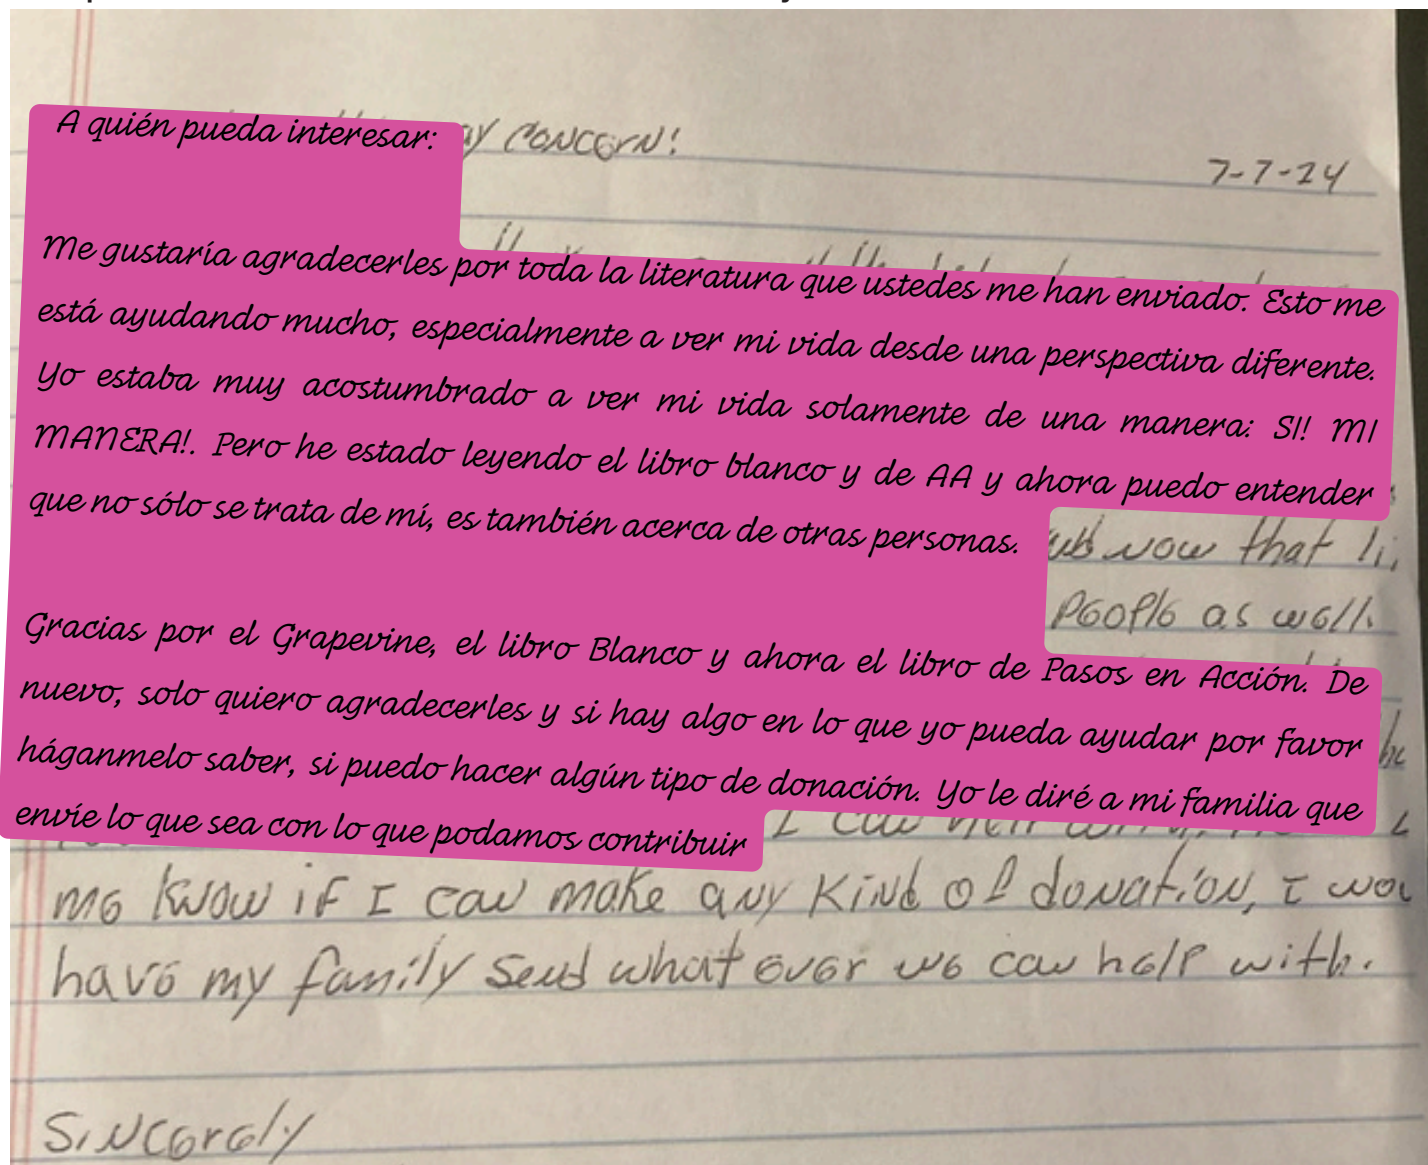 A quién pueda interesar:
ay concern!
7-7-24
Me gustaría agradecerles por toda la literatura que ustedes me han enviado. Esto me
está ayudando mucho, especialmente a ver mi vida desde una perspectiva diferente.
Yo estaba muy acostumbrado a ver mi vida solamente de una manera: SI! MI
MANERA!. Pero he estado leyendo el libro blanco y de AA y ahora puedo entender
que no sólo se trata de mí, es también acerca de otras personas.
now that
people as well.
Gracias por el Grapevine, el libro Blanco y ahora el libro de Pasos en Acción. De
nuevo, solo quiero agradecerles y si hay algo en lo que yo pueda ayudar por favor
háganmelo saber, si puedo hacer algún tipo de donación. Yo le diré a mi familia que
envíe lo que sea con lo que podamos contribuir
me know if I can make any kind of donation, I wou
have my family send what ever we can help with.
Sincerely